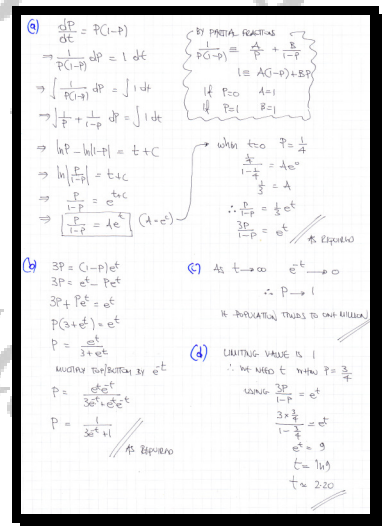 (a) dP/dt = P(1-P)
⇒ 1/P(1-P) dP = 1 dt
⇒ ∫ 1/P(1-P) dP = ∫ 1 dt
⇒ ∫ 1/P + 1/1-P dP = ∫ 1 dt
⇒ ln P - ln|1-P| = t + C
⇒ ln|P/1-P| = t + C
⇒ P/1-P = e^(t+C)
⇒ P/1-P = Ae^t (A = e^c)
BY PARTIAL FRACTIONS
1/P(1-P) ≡ A/P + B/1-P
1 ≡ A(1-P) + BP
If P=0 A=1
If P=1 B=1
WHEN t=0 P=1/4
1/4 / 1-1/4 = Ae^0
1/3 = A
∴ P/1-P = 1/3 e^t
3P/1-P = e^t
AS REQUIRED
(b) 3P = (1-P)e^t
3P = e^t - Pe^t
3P + Pe^t = e^t
P(3+e^t) = e^t
P = e^t/3+e^t
MULTIPLY TOP/BOTTOM BY e^-t
P = e^t e^-t/3e^-t + e^t e^-t
P = 1/3e^-t + 1
AS REQUIRED
(c) As t → ∞ e^-t → 0
∴ P → 1
IE POPULATION TENDS TO ONE MILLION
(d) LIMITING VALUE IS 1
∴ WE NEED t WHEN P = 3/4
USING 3P/1-P = e^t
3×3/4 / 1-3/4 = e^t
e^t = 9
t = ln 9
t ≈ 2.20